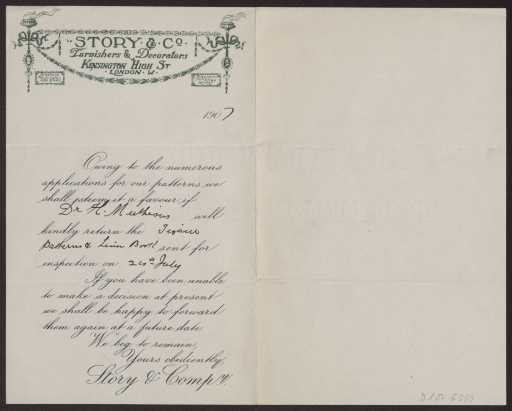 STORY & Co.
Furnishers & Decorators
KENSINGTON HIGH ST
LONDON · W ·
1907
Owing to the numerous
applications for our patterns, we
shall esteem it a favour if
Dr H. Muthesius will
kindly return the
Patterns & Linen Book sent for
inspection on 24th July
If you have been unable
to make a decision at present
we shall be happy to forward
them again at a future date.
We beg to remain,
Yours obediently,
Story & Compy.